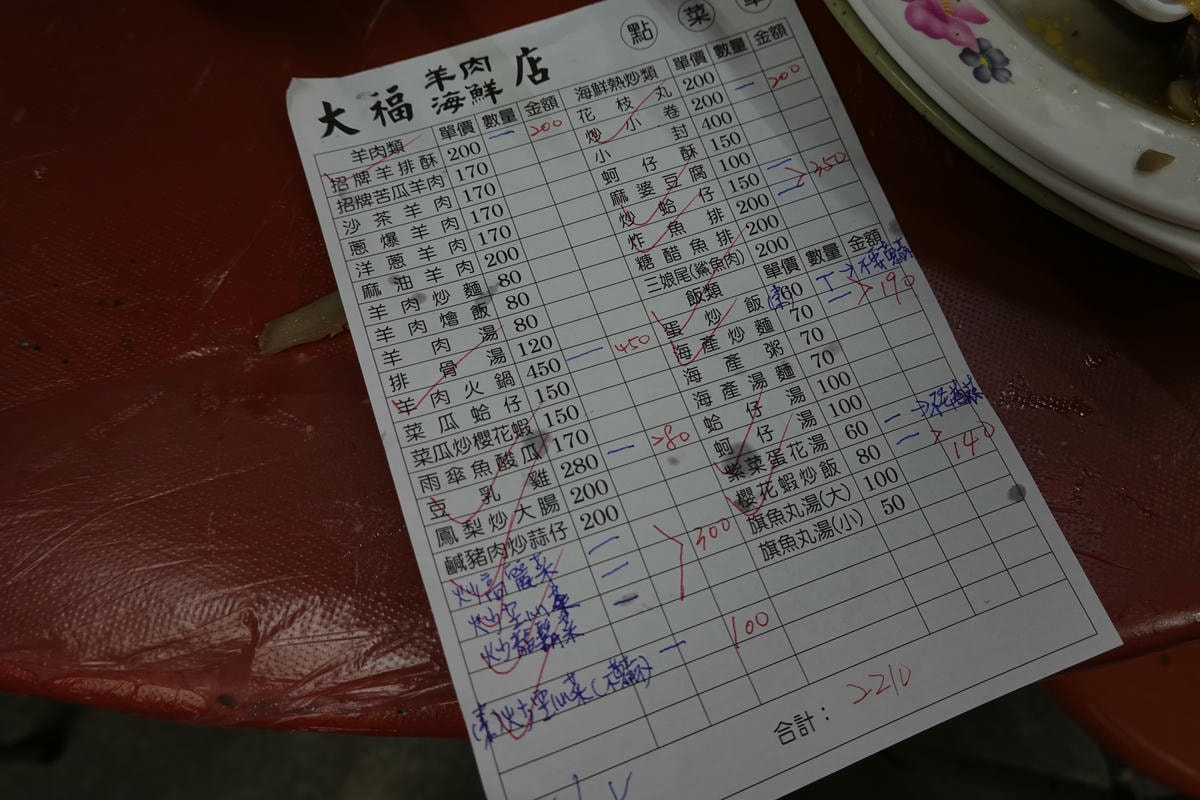 點 菜 單
大福 羊肉 海鮮 店
羊肉類 單價 數量 金額
招牌羊排酥 200 一 200
招牌苦瓜羊肉 170
沙茶羊肉 170
蔥爆羊肉 170
洋蔥羊肉 200
麻油羊肉 80
羊肉炒麵 80
羊肉燴飯 80
羊肉湯 120
排骨湯 450 一 450
羊肉火鍋 150
菜瓜蛤仔 150
菜瓜炒櫻花蝦 170 一 280
雨傘魚酸瓜 280
豆乳雞 200
鳳梨炒大腸 200
鹹豬肉炒蒜仔
炒高麗菜 一
炒空心菜 一 300
炒龍鬚菜 一
(素)炒空心菜(不蒜) 一 100
海鮮熱炒類 單價 數量 金額
花枝丸 200 一 200
炒小卷 200
小封 400
蚵仔酥 150
麻婆豆腐 100
炒蛤仔 150 一 350
炸魚排 200 一
糖醋魚排 200
三娘尾(鯊魚肉)
飯類 單價 數量 金額
蛋炒飯(素) 60
海產炒麵 70 一 190
海產粥 70
海產湯麵 70
蛤仔湯 100
蚵仔湯 100
紫菜蛋花湯 60 一
櫻花蝦炒飯 80 一 140
旗魚丸湯(大) 100
旗魚丸湯(小) 50
合計： 2210